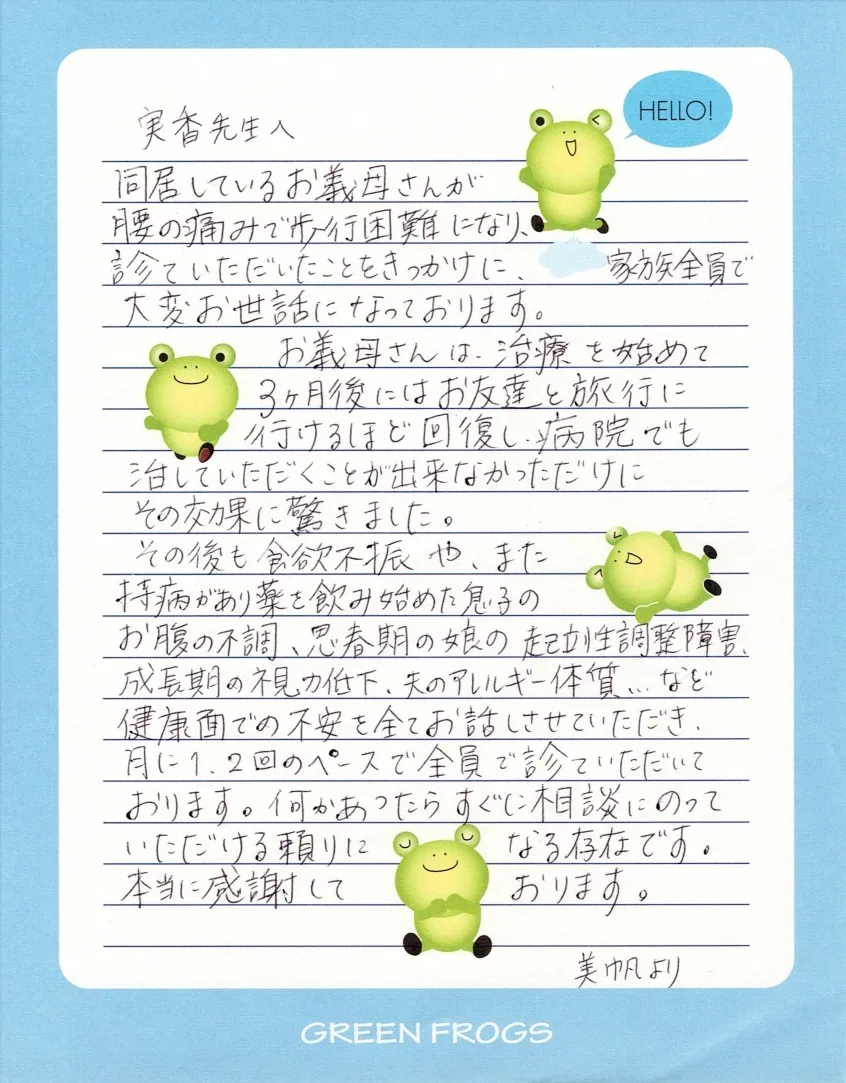 HELLO!
実香先生へ
同居しているお義母さんが
腰の痛みで歩行困難になり、
診ていただいたことをきっかけに、家族全員で
大変お世話になっております。
お義母さんは、治療を始めて
3ヶ月後にはお友達と旅行に
行けるほど回復し、病院でも
治していただくことが出来なかっただけに
その効果に驚きました。
その後も食欲不振や、また
持病があり薬を飲み始めた息子の
お腹の不調、思春期の娘の起立性調整障害、
成長期の視力低下、夫のアレルギー体質...など
健康面での不安を全てお話しさせていただき、
月に1、2回のペースで全員で診ていただいて
おります。何かあったらすぐに相談にのって
いただける頼りになる存在です。
本当に感謝しております。
美帆より
GREEN FROGS